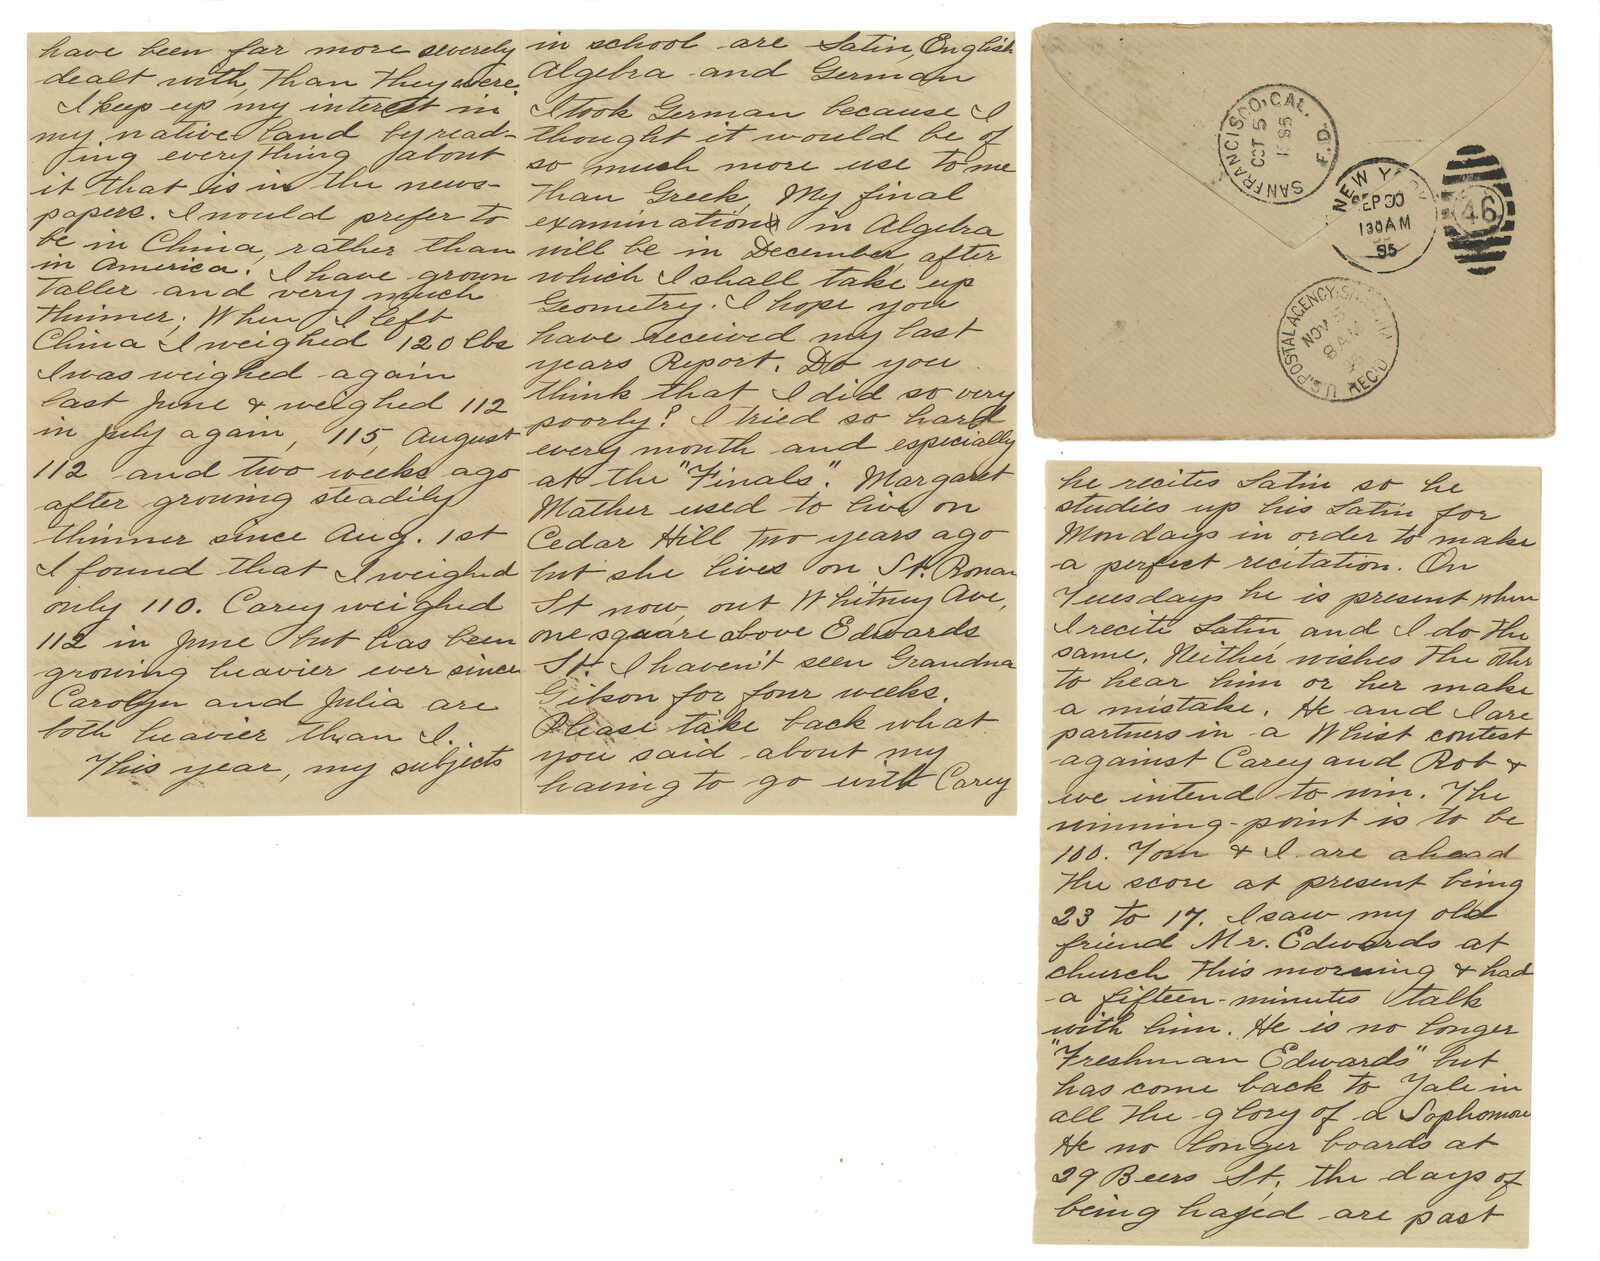 have been far more severely
dealt with, than they were.
I keep up my interest in
my native land by read-
ing everything about
it that is in the news-
papers. I would prefer to
be in China, rather than
in America. I have grown
taller and very much
thinner; When I left
China I weighed 120 lbs
I was weighed again
last June & weighed 112
in July again, 115, August
112 and two weeks ago
after growing steadily
thinner since Aug. 1st
I found that I weighed
only 110. Carey weighed
112 in June but has been
growing heavier ever since
Carolyn and Julia are
both heavier than I.
This year, my subjects
in school are Latin, English
Algebra and German
I took German because I
thought it would be of
so much more use to me
than Greek. My final
examinations in Algebra
will be in December, after
which I shall take up
Geometry. I hope you
have received my last
years Report. Do you
think that I did so very
poorly? I tried so hard
every month and especially
at the "Finals". Margaret
Mather used to live on
Cedar Hill two years ago
but she lives on St. Ronan
St now, out Whitney Ave,
one square above Edwards
St. I haven't seen Grandma
Gibson for four weeks.
Please take back what
you said about my
having to go with Carey
SAN FRANCISCO, CAL.
OCT 5
1895
F.D.
NEW YORK
SEP 30
130 AM
95
46
U.S. POSTAL AGENCY
NOV 5
8 AM
REC'D
he recites Latin so he
studies up his Latin for
Mondays in order to make
a perfect recitation. On
Tuesdays he is present when
I recite Latin, and I do the
same. Neither wishes the other
to hear him or her make
a mistake. He and I are
partners in a Whist contest
against Carey and Rob &
we intend to win. The
winning-point is to be
100. Tom & I are ahead
the score at present being
23 to 17. I saw my old
friend Mr. Edwards at
church this morning & had
a fifteen-minutes talk
with him. He is no longer
"Freshman Edwards" but
has come back to Yale in
all the glory of a Sophomore
He no longer boards at
29 Beers St. The days of
being hazed are past